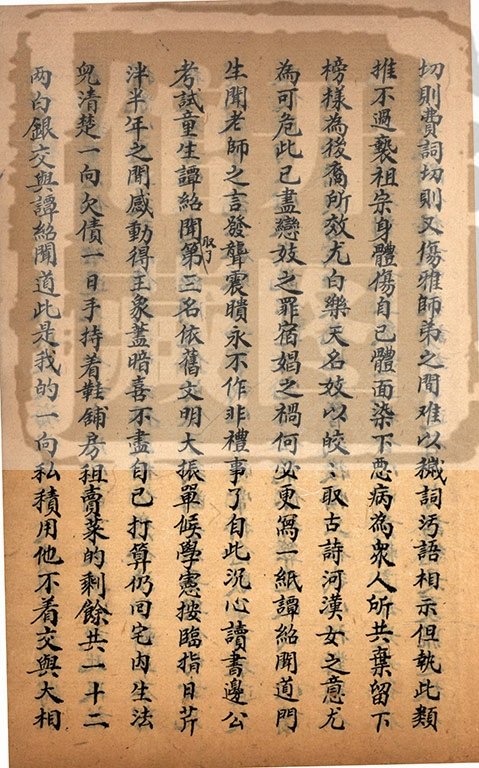 切則費詞切則又傷雅師弟之間难以穢詞污語相示但執此類
推不過褻祖宗身體傷自己體面染下惡病為眾人所共棄留下
榜樣為後裔所效尤白樂天名妓以皎〻取古詩河漢女之意尤
為可危此已盡戀妓之罪宿娼之禍何必更寫一紙譚紹聞道門
生聞老師之言發聾震聵永不作非禮事了自此沉心讀書邊公
考試童生譚紹聞取了第三名依舊文明大振單候學憲按臨指日芹
泮半年之間感動得王象藎暗喜不盡自己打算仍回宅內生法
兒清楚一向欠債一日手持着鞋鋪房租賣菜的剩餘共一十二
两白銀交與譚紹聞道此是我的一向私積用他不着交與大相